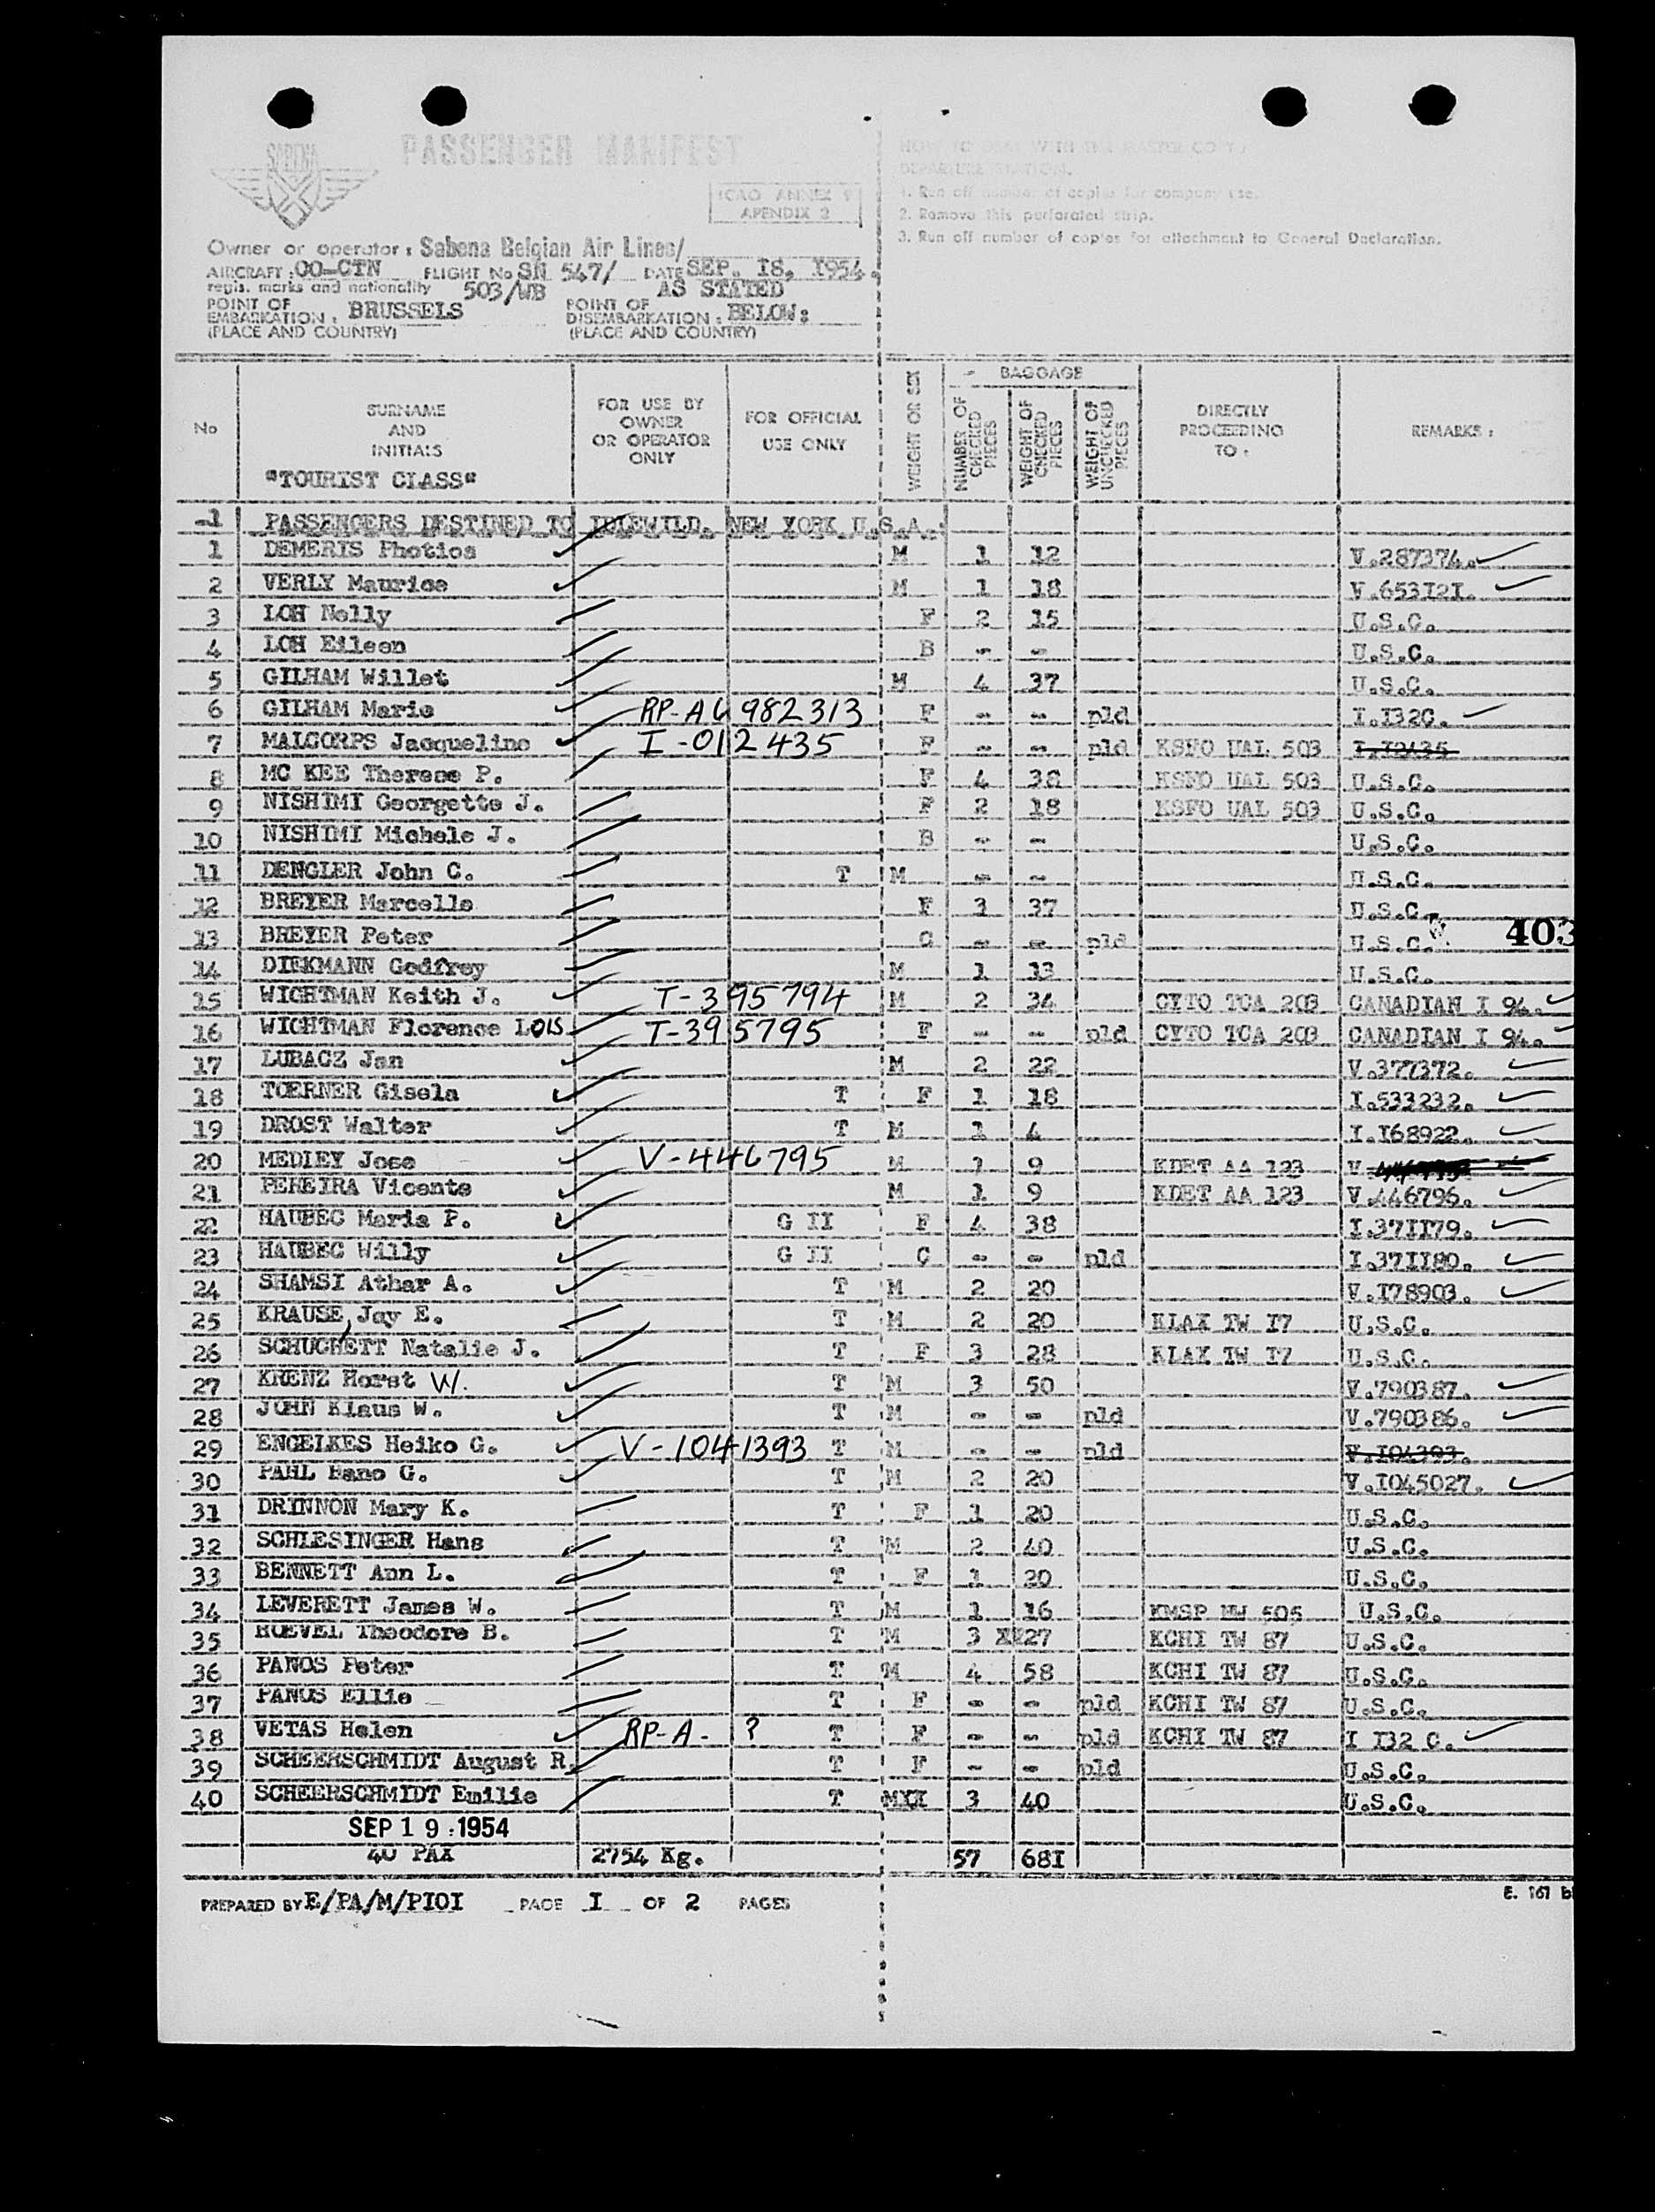 PASSENGER MANIFEST
SABENA
ICAO ANNEX 9
APENDIX 2
HOW TO DEAL WITH THE MASTER COPY
DEPARTURE STATION.
1. Run off number of copies for company use.
2. Remove this perforated strip.
3. Run off number of copies for attachment to General Declaration.
Owner or operator : Sabena Belgian Air Lines/
AIRCRAFT : OO-CTN FLIGHT No SN 547/ DATE SEP. I8, I954.
regis. marks and nationality 503/WB AS STATED
POINT OF EMBARKATION : BRUSSELS POINT OF DISEMBARKATION : BELOW:
(PLACE AND COUNTRY) (PLACE AND COUNTRY)
No SURNAME AND INITIALS FOR USE BY OWNER OR OPERATOR ONLY FOR OFFICIAL USE ONLY WEIGHT OR SEX BAGGAGE NUMBER OF CHECKED PIECES WEIGHT OF CHECKED PIECES WEIGHT OF UNCHECKED PIECES DIRECTLY PROCEEDING TO : REMARKS :
"TOURIST CLASS"
PASSENGERS DESTINED TO IDLEWILD. NEW YORK U.S.A.
1 DEMERIS Photios M 1 12 V.287374.
2 VERLY Maurice M 1 18 V.653I2I.
3 LOH Nelly F 2 15 U.S.C.
4 LOH Eileen B - - U.S.C.
5 GILHAM Willet M 4 37 U.S.C.
6 GILHAM Marie RP-A6 982313 F - - pld I.I32C.
7 MALCORPS Jacqueline I-012435 F - - pld KSFO UAL 503 I.I2435
8 MC KEE Therese P. F 4 38 KSFO UAL 503 U.S.C.
9 NISHIMI Georgette J. F 2 18 KSFO UAL 503 U.S.C.
10 NISHIMI Michele J. B - - U.S.C.
11 DENGLER John C. T M - - U.S.C.
12 BREYER Marcelle F 3 37 U.S.C.
13 BREYER Peter C - - pld U.S.C. 403
14 DIEKMANN Godfrey M 1 13 U.S.C.
15 WIGHTMAN Keith J. T-395794 M 2 34 CYTO TCA 203 CANADIAN I 94.
16 WIGHTMAN Florence LOIS T-395795 F - - pld CYTO TCA 203 CANADIAN I 94.
17 LUBACZ Jan M 2 22 V.377372.
18 TOERNER Gisela T F 1 18 I.533232.
19 DROST Walter T M 1 4 I.I68922.
20 MEDLEY Jose V-446795 M 1 9 KDET AA 123 V
21 PEREIRA Vicente M 1 9 KDET AA 123 V.446796.
22 HAUBEC Maria P. G II F 4 38 I.37II79.
23 HAUBEC Willy G II C - - pld I.37II80.
24 SHAMSI Athar A. T M 2 20 V.I78903.
25 KRAUSE, Jay E. T M 2 20 KLAX TW I7 U.S.C.
26 SCHUCHETT Natalie J. T F 3 28 KLAX TW I7 U.S.C.
27 KRENZ Horst W. T M 3 50 V.790387.
28 JOHN Klaus W. T M - - pld V.790386.
29 ENGELKES Heiko G. V-1041393 T M - - pld V.I04393.
30 PAHL Hano G. T M 2 20 V.I045027.
31 DRINNON Mary K. T F 1 20 U.S.C.
32 SCHLESINGER Hans T M 2 40 U.S.C.
33 BENNETT Ann L. T F 1 20 U.S.C.
34 LEVERETT James W. T M 1 16 KMSP NW 505 U.S.C.
35 HOEVEL Theodore B. T M 3 27 KCHI TW 87 U.S.C.
36 PANOS Peter T M 4 58 KCHI TW 87 U.S.C.
37 PANOS Ellie T F - - pld KCHI TW 87 U.S.C.
38 VETAS Helen RP-A- ? T F - - pld KCHI TW 87 I I32 C.
39 SCHEERSCHMIDT August R. T F - - pld U.S.C.
40 SCHEERSCHMIDT Emilie T MXX 3 40 U.S.C.
SEP 19 1954
40 PAX 2754 Kg. 57 68I
PREPARED BY E/PA/M/PIOI PAGE I OF 2 PAGES
E. 161 b